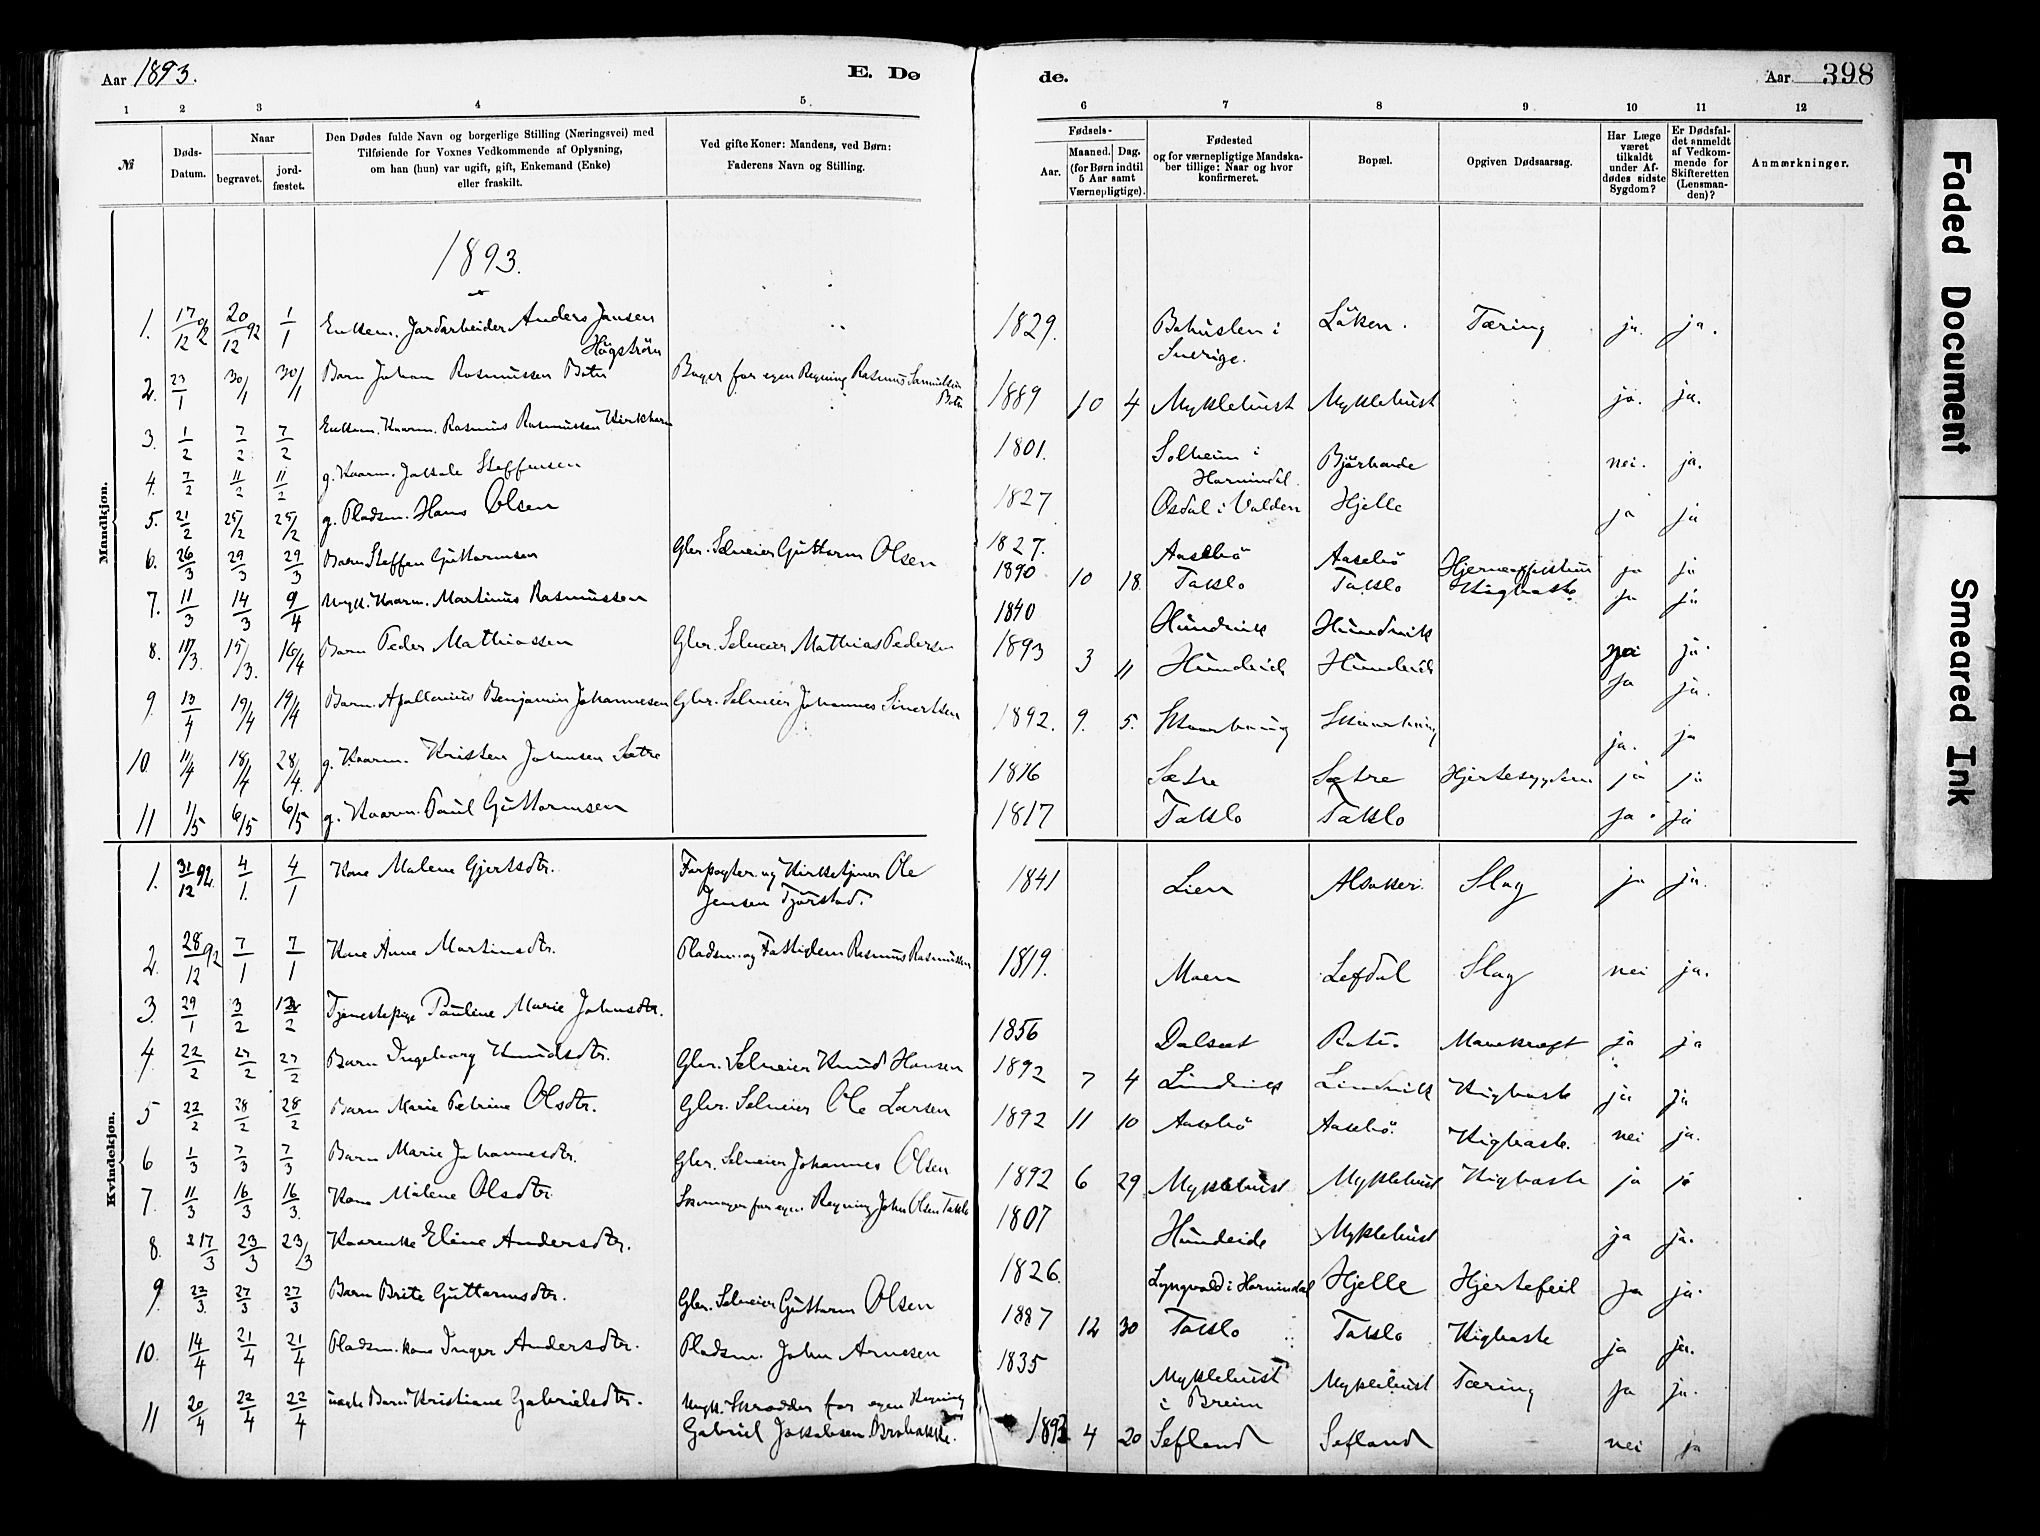 Aar 1893.
E. Dø
de.
Aar 398
1 2 3 4 5. 6 7 8 9 10 11 12
№
Døds-
Datum.
Naar
begravet.
jord-
fæstet.
Den Dødes fulde Navn og borgerlige Stilling (Næringsvei) med
Tilføiende for Voxnes Vedkommende af Oplysning,
om han (hun) var ugift, gift, Enkemand (Enke)
eller fraskilt.
Ved gifte Koner: Mandens, ved Børn:
Faderens Navn og Stilling.
Fødsels-
Aar.
Maaned. Dag.
(for Børn indtil
5 Aar samt
Værnepligtige).
Fødested
og for værnepligtige Mandska-
ber tillige: Naar og hvor
konfirmeret.
Bopæl.
Opgiven Dødsaarsag.
Har Læge
været
tilkaldt
under Af-
dødes sidste
Sygdom?
Er Dødsfal-
det anmeldt
af Vedkom-
mende for
Skifteretten
(Lensman-
den)?
Anmærkninger.
Mandkjøn.
1893.
1. 17/12 92 20/12 92 1/1 Enkem. Jordarbeider Anders Jansen 1829. Bahuslen i Löken. Tæring ja. ja.
Högström Sverige.
2. 23/1 30/1 30/1 Barn Johan Rasmussen Bøtn Bager for egen Regning Rasmus Samuelsen 1889 10 4 Myklebust Myklebust ja. ja.
3. 1/2 7/2 7/2 Enkem. Kaarm. Rasmus Rasmussen Kirkhorn 1801. Solheim i Bjørhovde nei. ja.
Hornindal.
4. 7/2 11/2 11/2 g. Kaarm. Jakob Steffensen 1827 Osdal i Volden Hjelle ja ja
5. 21/2 25/2 25/2 g. Pladsm. Hans Olsen 1827. Aasebø Aasebø ja ja
6. 26/3 29/3 29/3 Barn Steffen Guttormsen Gbr. Selveier Guttorm Olsen 1890 10 18 Taklo Taklo Kighoste ja ja
7. 11/3 14/3 9/4 Ungk. Kaarm. Martinus Rasmussen 1840 Hundvik Hundvik nei ja.
8. 11/3. 15/3. 16/4 Barn Peder Mathiassen Gbr. Selveier Mathias Pedersen 1893 3 11 Hundeid Hundeid ja ja.
9. 13/4 19/4 19/4 Barn. Apollonius Benjamin Johannesen Gbr. Selveier Johannes Sivertsen 1892. 9. 5. ja. ja
10. 11/4 18/4 28/4. g. Kaarm. Kristen Johnsen Sætre 1816 Sætre Sætre Hjertesygdom ja ja
11 1/5 6/5 6/5 g. Kaarm. Paul Guttormsen 1817 Taklo Taklo ja. ja
Kvindekjøn.
1. 31/12 92. 4/1. 4/1 Kone Malene Gjertsdtr. Forpagter og Kirketjener Ole 1841 Lien Alsaker. Slag ja ja.
Jensen Tjørstad.
2. 28/12 92 7/1 7/1 Kone Anne Martinsdtr. Pladsm. og Fattiglem Rasmus Rasmussen 1819. Moen Lefdal Slag nei ja.
3. 29/1 3/2 Tjenestepige Pauline Marie Johnsdtr. 1856 Dalset Marekræft ja ja
4 22/2 27/2 27/2 Barn Ingeborg Knudsdtr. Gbr. Selveier Knud Hansen 1892 7 4 Lindvik Lindvik Kighoste ja ja
5 22/2 28/2 28/2 Barn Marie Petrine Olsdtr. Gbr. Selveier Ole Larsen 1892 11 10 Aasebø Aasebø. Kighoste. nei ja.
6 1/3 7/3 7/3 Barn Marie Johannesdtr. Gbr. Selveier Johannes Olsen 1892 6 29 Myklebust Myklebust Kighoste ja ja
7. 11/3 16/3 16/3. Kone Malene Olsdtr. Skomager for egen Regning John Olsen Taklo 1807 Hundeide Myklebust ja ja.
8. 17/3 23/3 23/3 Kaarenke Eline Andersdtr. 1826. Lyngvold i Hornindal Hjelle Hjertefeil ja ja.
9. 22/3. 27/3 27/3 Barn Brite Guttormsdtr. Gbr. Selveier Guttorm Olsen 1887 12 30 Taklo Taklo Kighoste ja ja.
10. 14/4 21/4 21/4 Pladsm. kone Inger Andersdtr. Pladsm. John Arnesen 1835 Myklebust Myklebust Tæring ja ja.
i Breim
11 20/4 22/4 22/4 uægte Barn Kristiane Gabrielsdtr. Ungk. Skrædder for egen Regning 4 20 Sefland Sefland nei ja
Gabriel Jakobsen Brobakke.
Faded Document
Smeared Ink